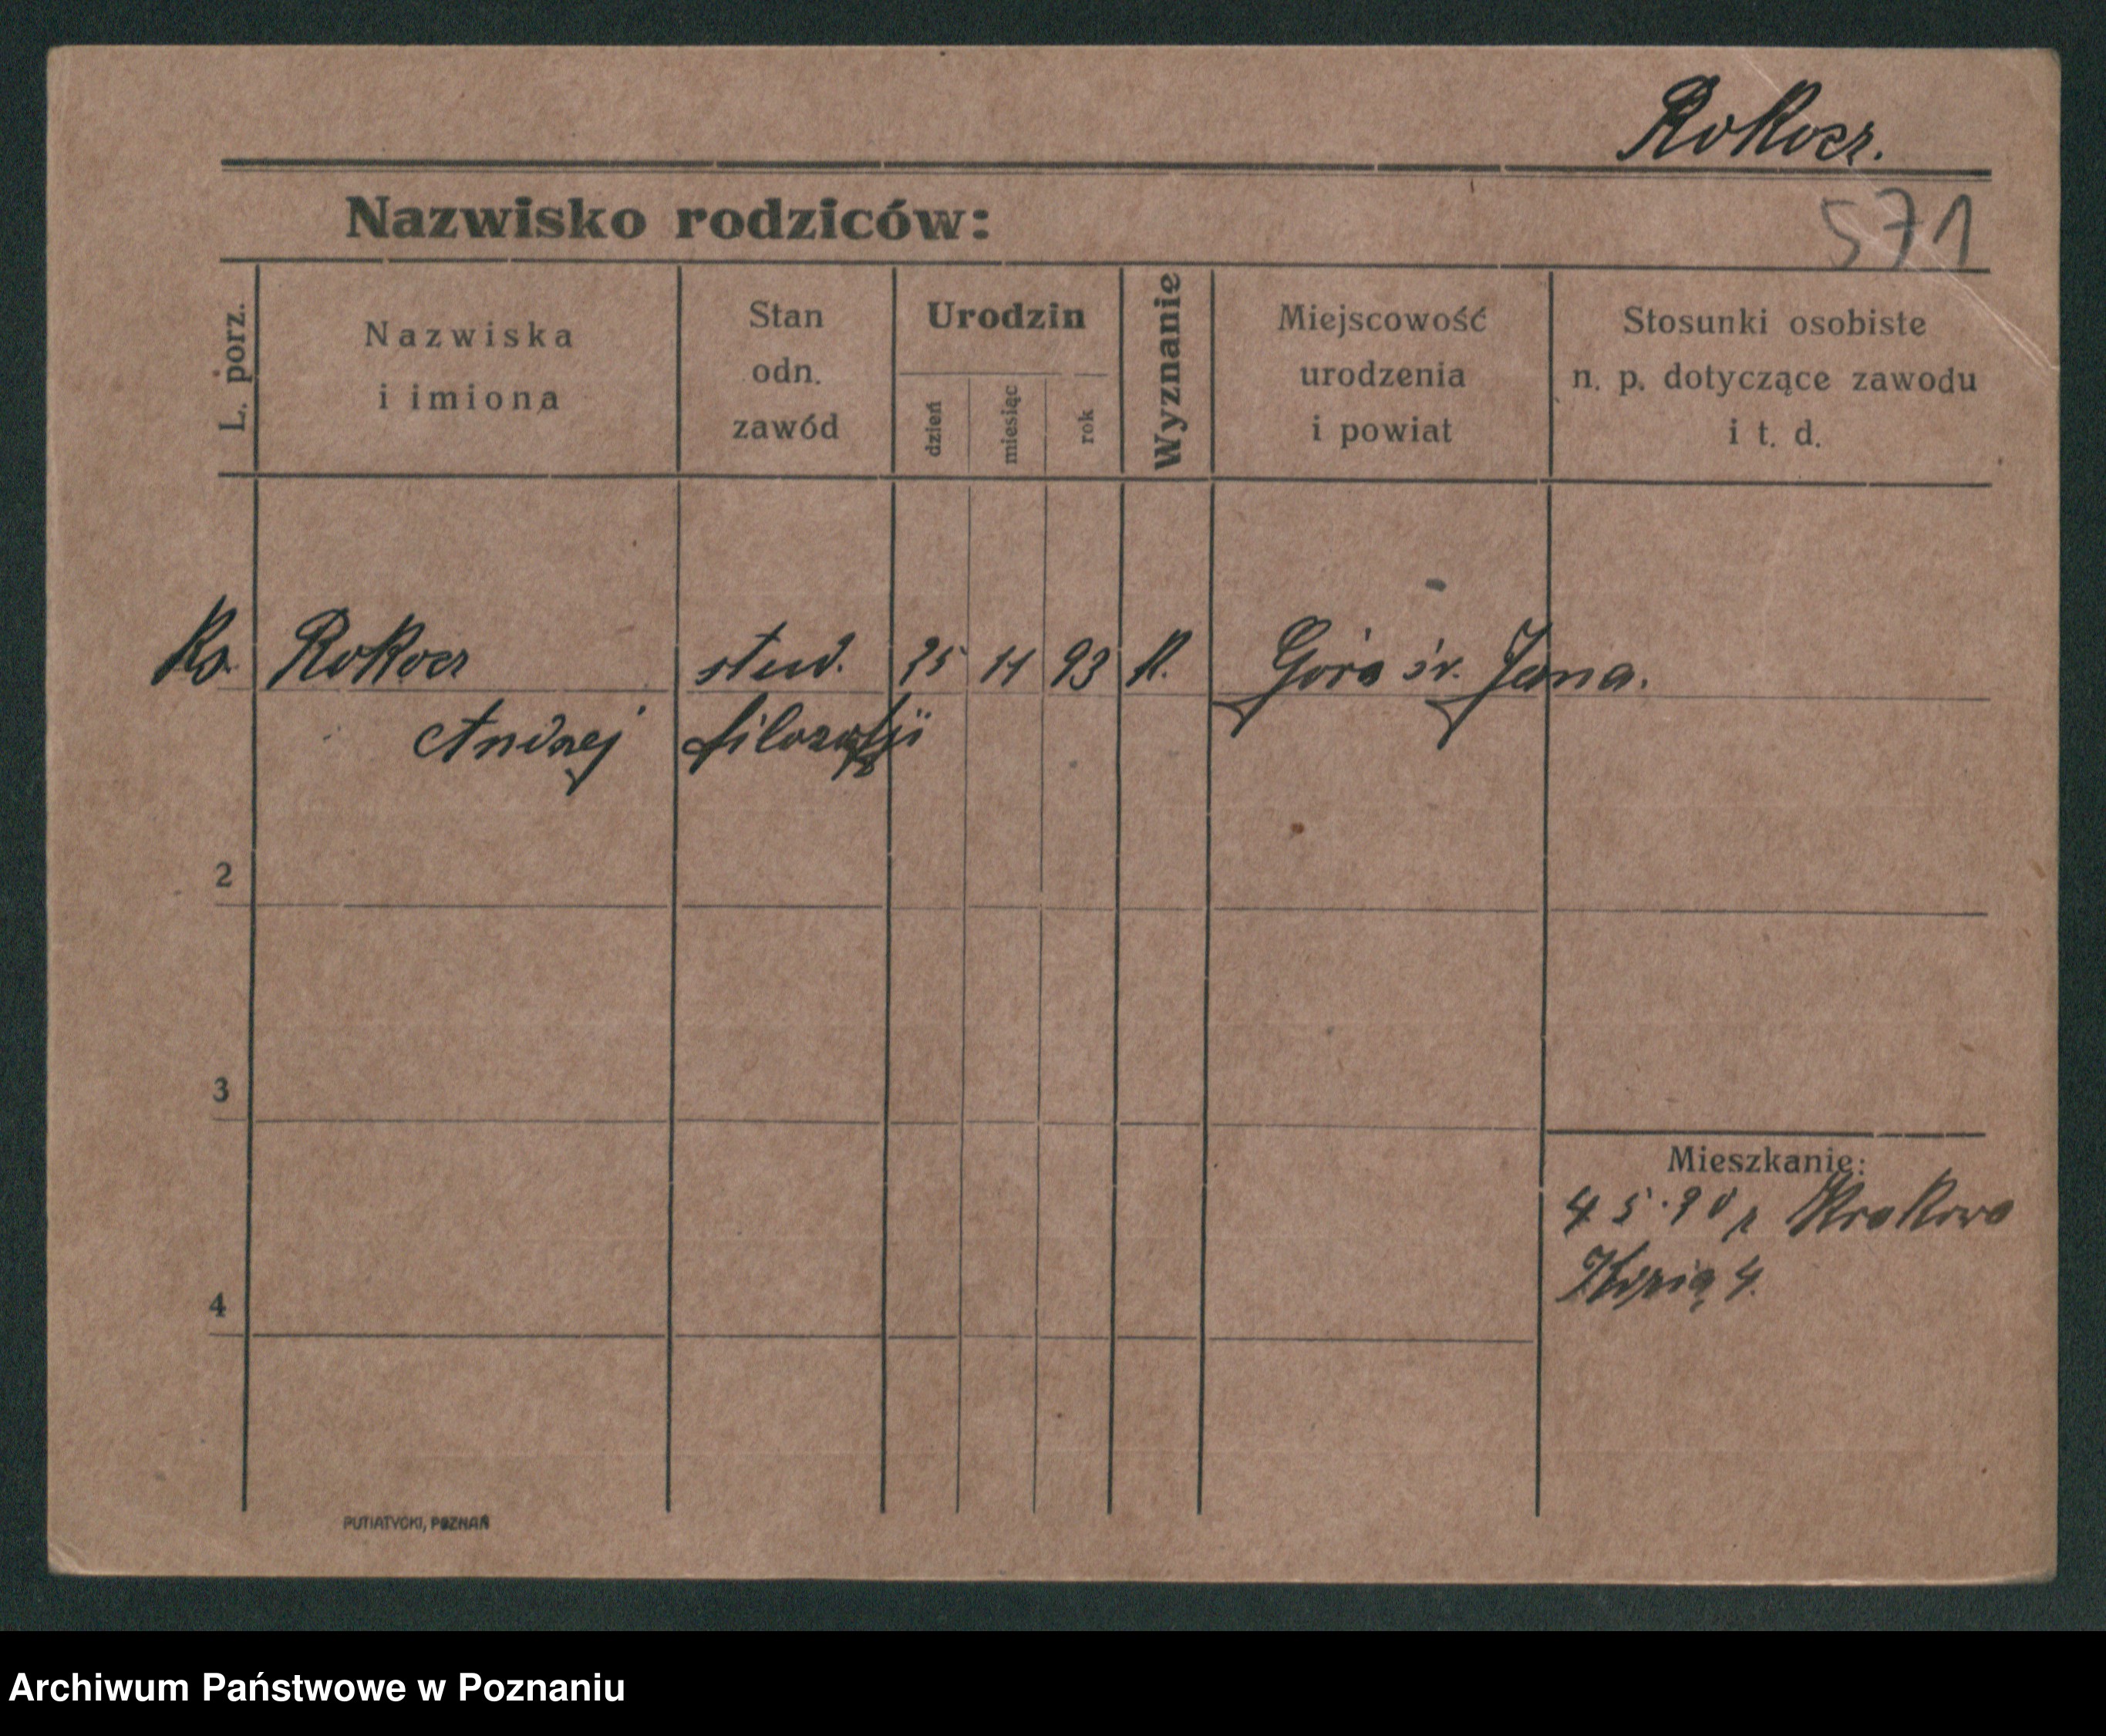 Rokosz.
Nazwisko rodziców:
571
L. porz.
Nazwiska
i imiona
Stan
odn.
zawód
Urodzin
dzień
miesiąc
rok
Wyznanie
Miejscowość
urodzenia
i powiat
Stosunki osobiste
n. p. dotyczące zawodu
i t. d.
Ks. Rokosz stud. 25 11 93 K. Góra św. Jana.
Andrzej filozofji
2
3
Mieszkanie:
4 5.20 z Krakowa
4
PUTIATYCKI, POZNAŃ
Archiwum Państwowe w Poznaniu